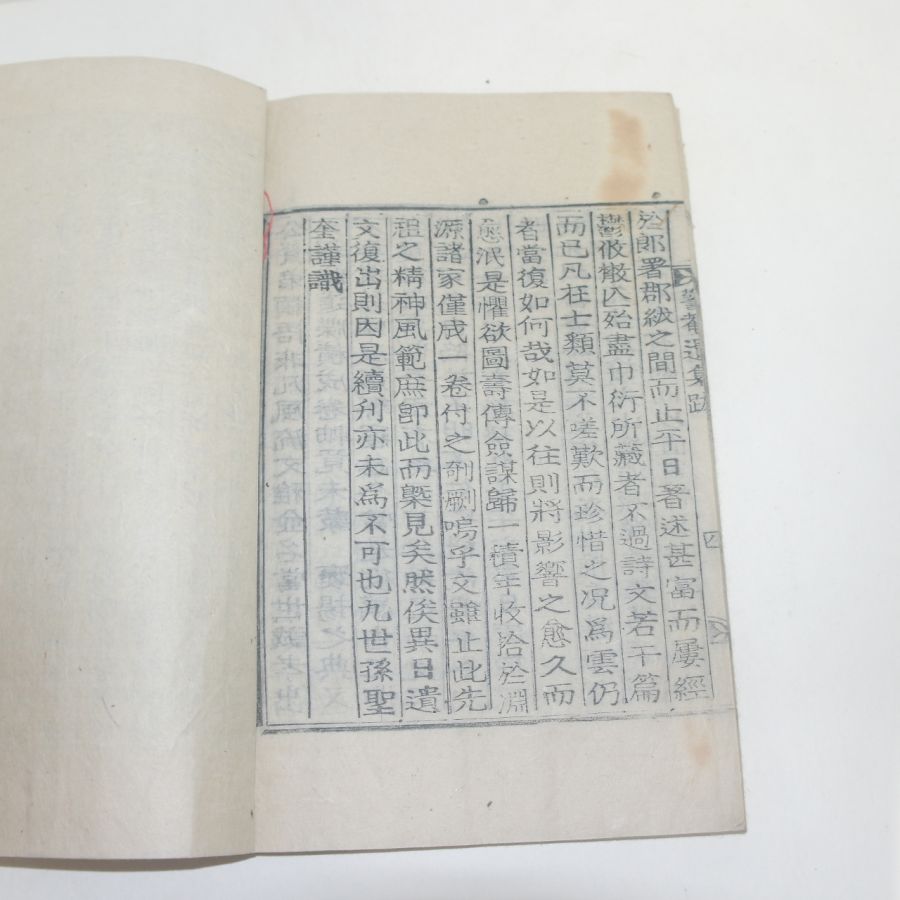 於郎署郡紱之間而止平日著述甚富而屢經
鬱攸散亾殆盡巾衍所藏者不過詩文若干篇
而已凡在士類莫不嗟歎而珍惜之况爲雲仍
者當復如何哉如是以往則將影響之愈久而
愈泯是懼欲圖壽傳僉謀歸一積年收拾於淵
源諸家僅成一卷付之剞劂嗚乎文雖止此先
祖之精神風範庶卽此而槩見矣然俟異日遺
文復出則因是續刊亦未爲不可也九世孫聖
奎謹識
遺集跋
四